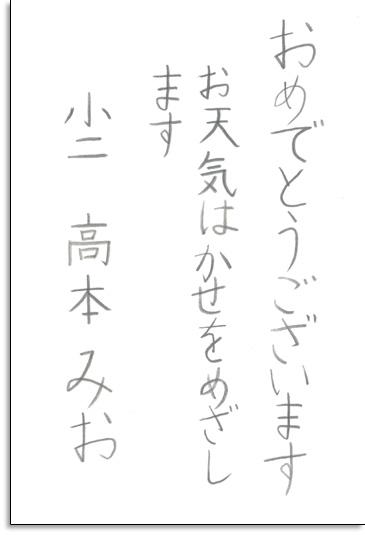 おめでとうございます
お天気はかせをめざし
ます
小二 高本みお